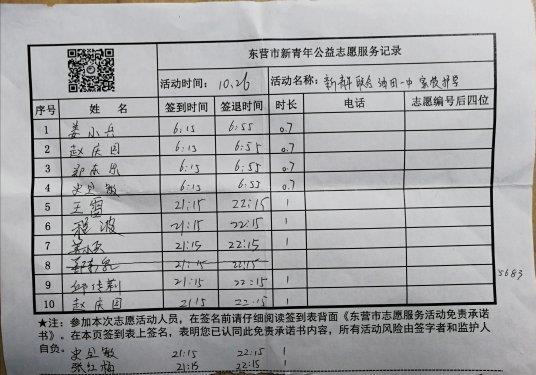 东营市新青年公益志愿服务记录
活动时间： 10.26 活动名称：
序号 姓 名 签到时间 签退时间 时长 电话 志愿编号后四位
1 姜小兵 6:15 6:55 0.7
2 赵庆国 6:15 6:55 0.7
3 郑东乐 6:15 6:55 0.7
4 6:15 6:55 0.7
5 王雪 21:15 22:15 1
6 程波 21:15 22:15 1
7 21:15 22:15 1
8 21:15 22:15
9 邱佳莉 21:15 22:15 1 5683
10 赵庆国 21:15 22:15 1
★注：参加本次志愿活动人员，在签名前请仔细阅读签到表背面《东营市志愿服务活动免责承诺
书》。在本页签到表上签名，表明您已认同此免责承诺书内容，所有活动风险由签字者和监护人
自负。
21:15 22:15 1
张红梅 21:15 22:15 1